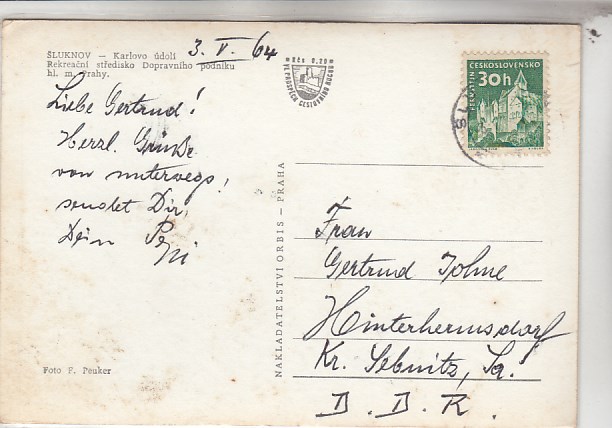 ŠLUKNOV — Karlovo údolí
Rekreační středisko Dopravního podniku
hl. m. Prahy.
3. V. 64
Liebe Gertrud!
Herzl. Grüße
von unterwegs,
sendet Dir,
Dein Pepi
Foto F. Peuker
NAKLADATELSTVÍ ORBIS – PRAHA
Kčs 0.20
VE PROSPĚCH CESTOVNÍHO RUCHU
ČESKOSLOVENSKO
30h
PERNŠTEJN
Frau
Gertrud
Hinterhermsdorf
Kr. Sebnitz, Sa.
D. D. R.